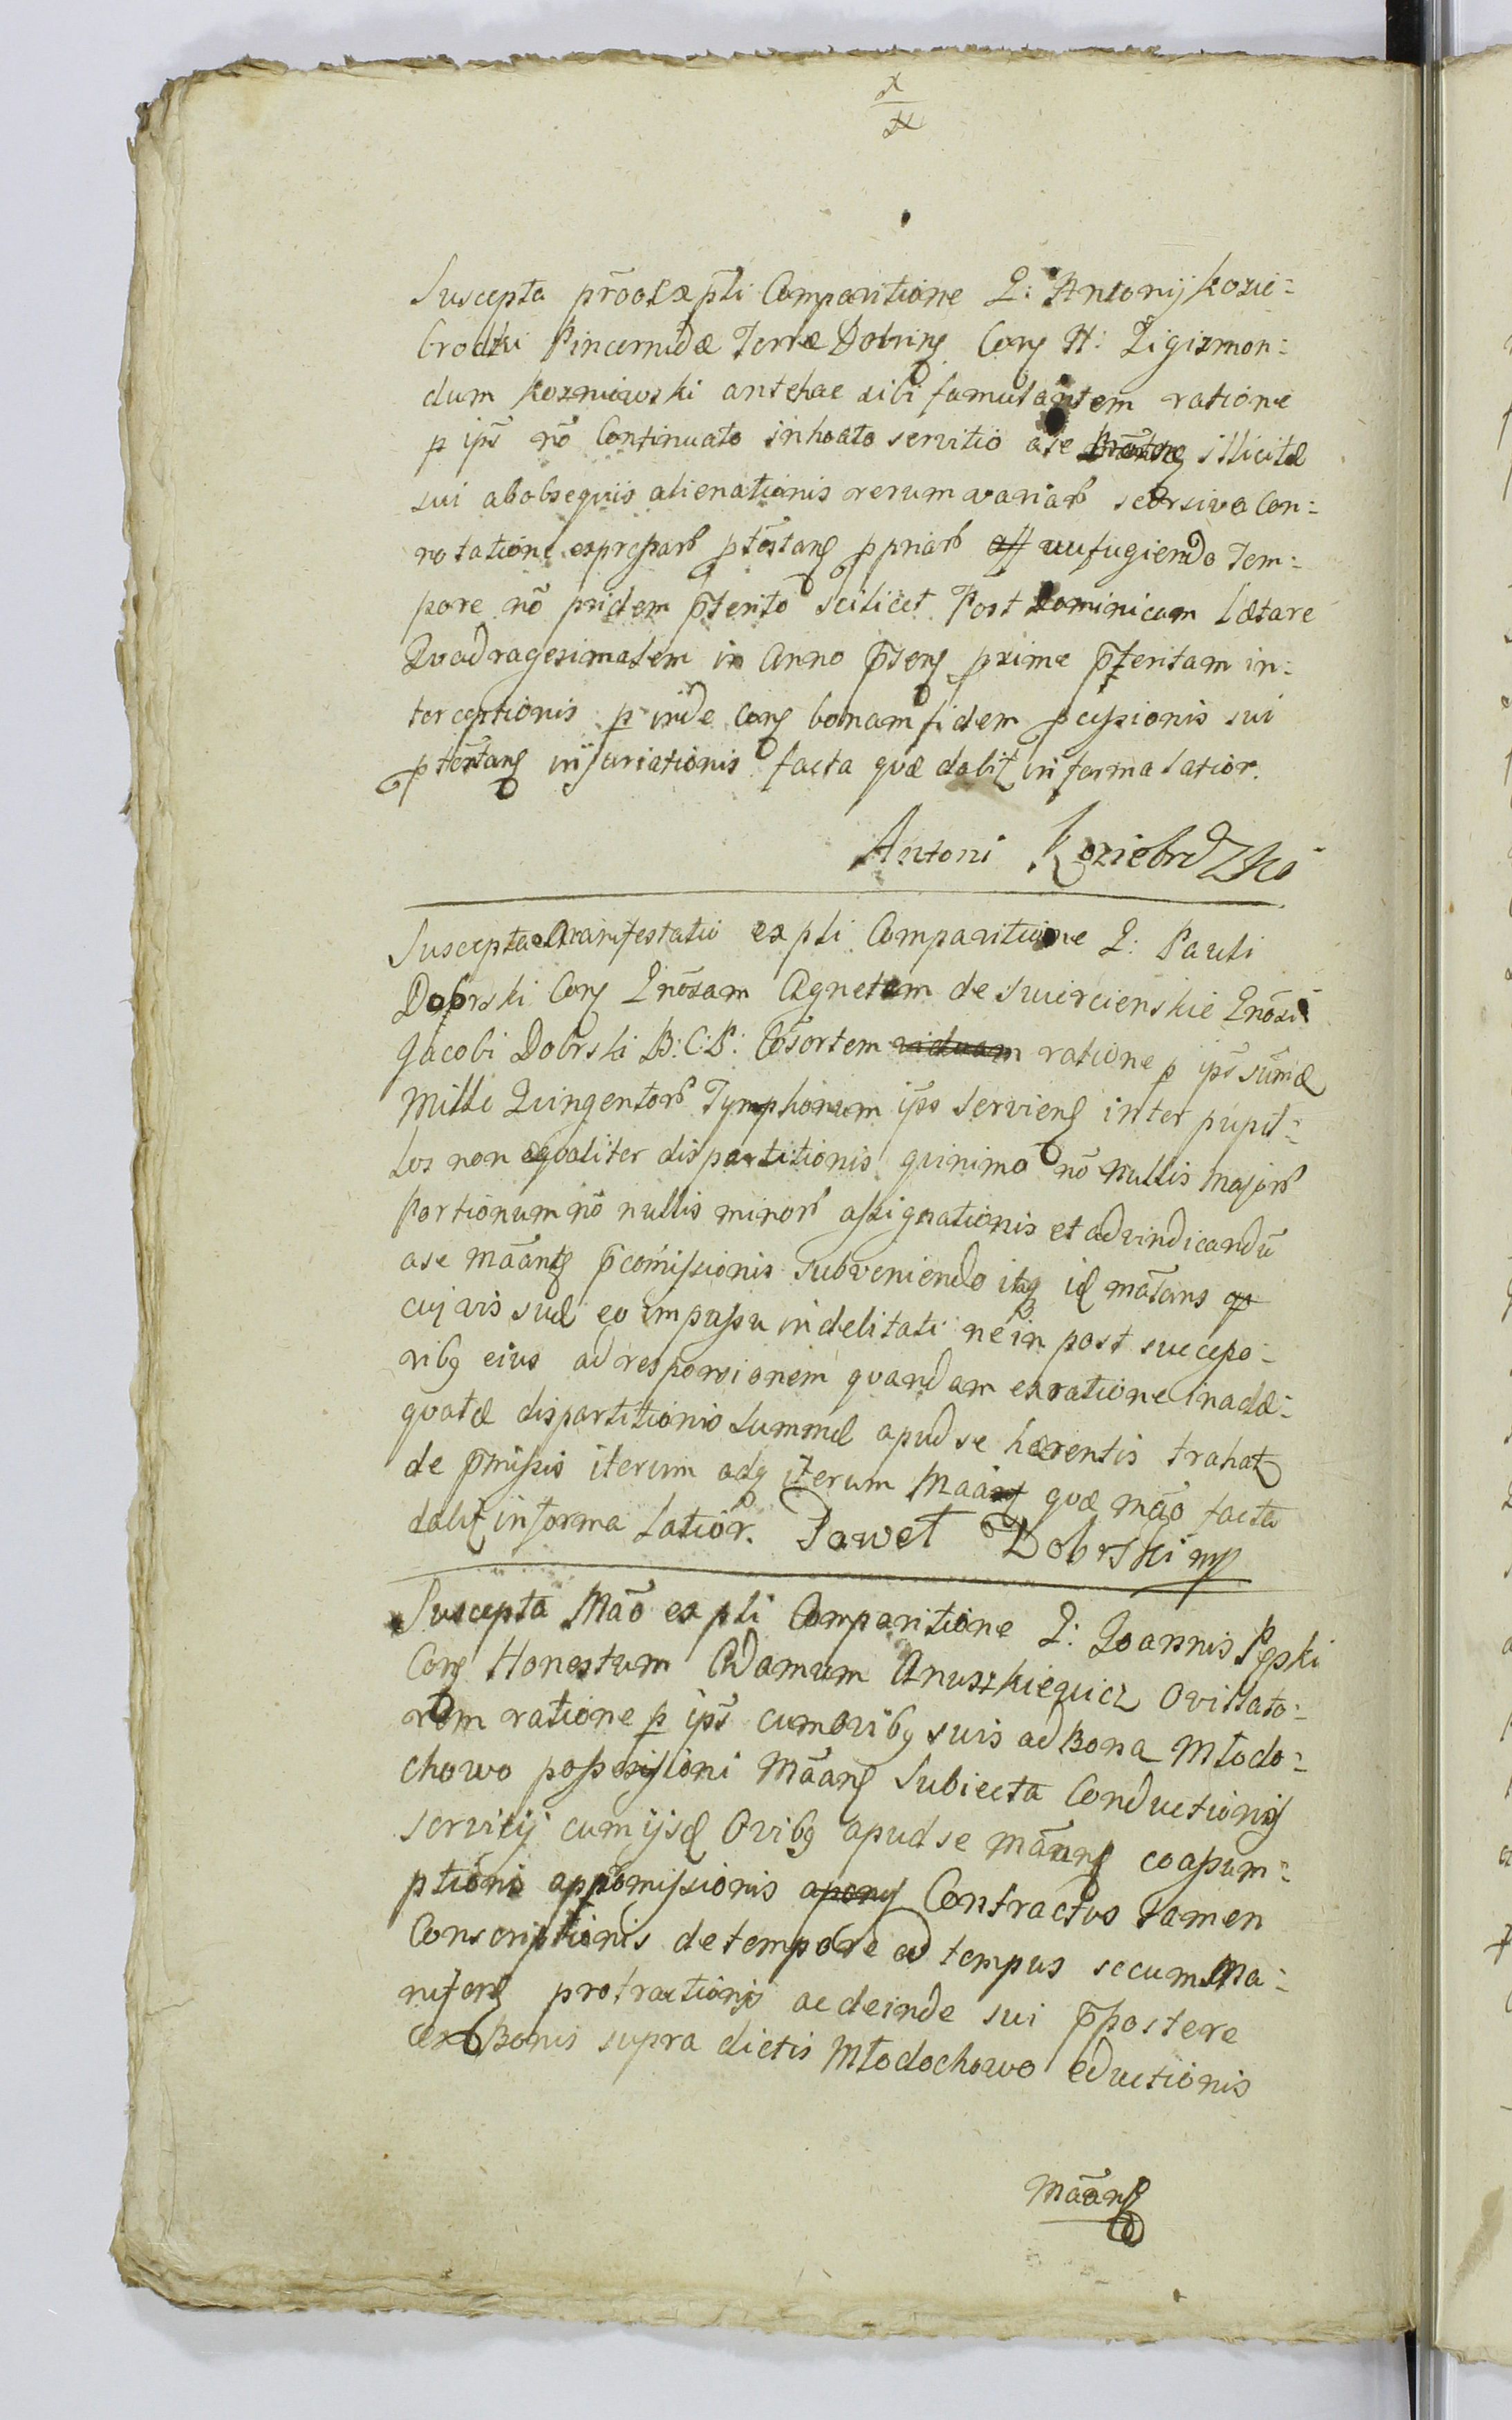 Suscepta prõõ ex pti Comparitione G: Antonij Kozie=
brodzki Pincernidæ Terræ Dobrinẽ Conẽ H: Zigizmon=
dum Kozniewski antehac sibi famulantem ratione
p ips nõ Continuato inhoato servitio a se illicitæ
sui ab obsequiis alienationis rerum variarũ seorsivo Con=
notatione expressarũ ptestanẽ ppriarũ aufugiendo Tem=
pore nõ pridem p̃terito scilicet Post Dominicam Lætare
Quadragesimalem in Anno p̃senẽ pxime p̃teritam in=
terceptionis p inde Conẽ bonam fidem pcessionis sui
ptestanẽ injuriationis facta quæ dabit in forma latior.
Antoni Koziebrodzki
Suscepta Manifestatio ex pti Comparitione G: Pauli
Dobrski Conẽ Gnõsam Agnetem de Swiercienskie Gnõsi
Jacobi Dobrski B: C: P: Cõsortem viduam ratione p ips sum̃æ
Mille Quingentorũ Tymphonum ips servienẽ inter pupil=
los non æqualiter dispartitionis quinimo nõ nullis Majorũ
Portionum nõ nullis minorũ assignationis et ad vindicandũ
a se mãanẽ p̃com̃issionis subveniendo itaq id mãtans
cujvis suæ eo impassu indelitati ne in post successo=
ribg eius ad responsionem quandam ex ratione inadæ=
quatæ dispartitionis summæ apud se hærentis trahat
de p̃missis iterum adq iterum Mãanẽ quæ mãõ facta
dabit in forma latior. Paweł Dobrski mp
Suscepta Mãõ ex pti Comparitione G: Joannis Pęski
Conẽ Honestum Adamum Anuszkiewicz Ovillato=
rem ratione p ips cum ovibg suis ad Bona Młodo=
chowo possessioni Mãanẽ Subiecta Conductionis
servitij cum ijsd Ovibg apud se mãanẽ coassum=
ptionis appromissionis Contractus tamen
Conscriptionis de tempore ad tempus secum Ma=
nifenẽ protractionis ac deinde sui p̃postere
ex Bonis supra dictis Młodochowo eductionis
Mãanẽ